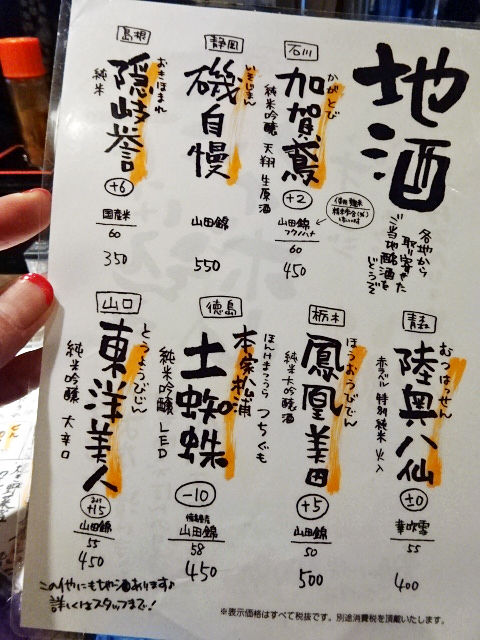 地酒
各地から
取り寄せた
ご当地銘酒を
どうぞ
石川
かがとび
加賀鳶
純米吟醸 天翔 生原酒
+2
山田錦
フクノハナ
60
450
静岡
いそじまん
磯自慢
山田錦
550
島根
おきほまれ
隠岐誉
純米
+6
国産米
60
350
青森
むつはっせん
陸奥八仙
赤ラベル 特別純米 火入
±0
華吹雪
55
400
栃木
ほうおうびでん
鳳凰美田
純米大吟醸酒
+5
山田錦
50
500
徳島
本家松浦
ほんけまつうら つちぐも
土蜘蛛
純米吟醸 LED
-10
山田錦
58
450
山口
とうようびじん
東洋美人
純米吟醸 大辛口
+15
山田錦
55
450
この他にも地酒あります♪
詳しくはスタッフまで!
※表示価格はすべて税抜です。別途消費税を頂戴いたします。